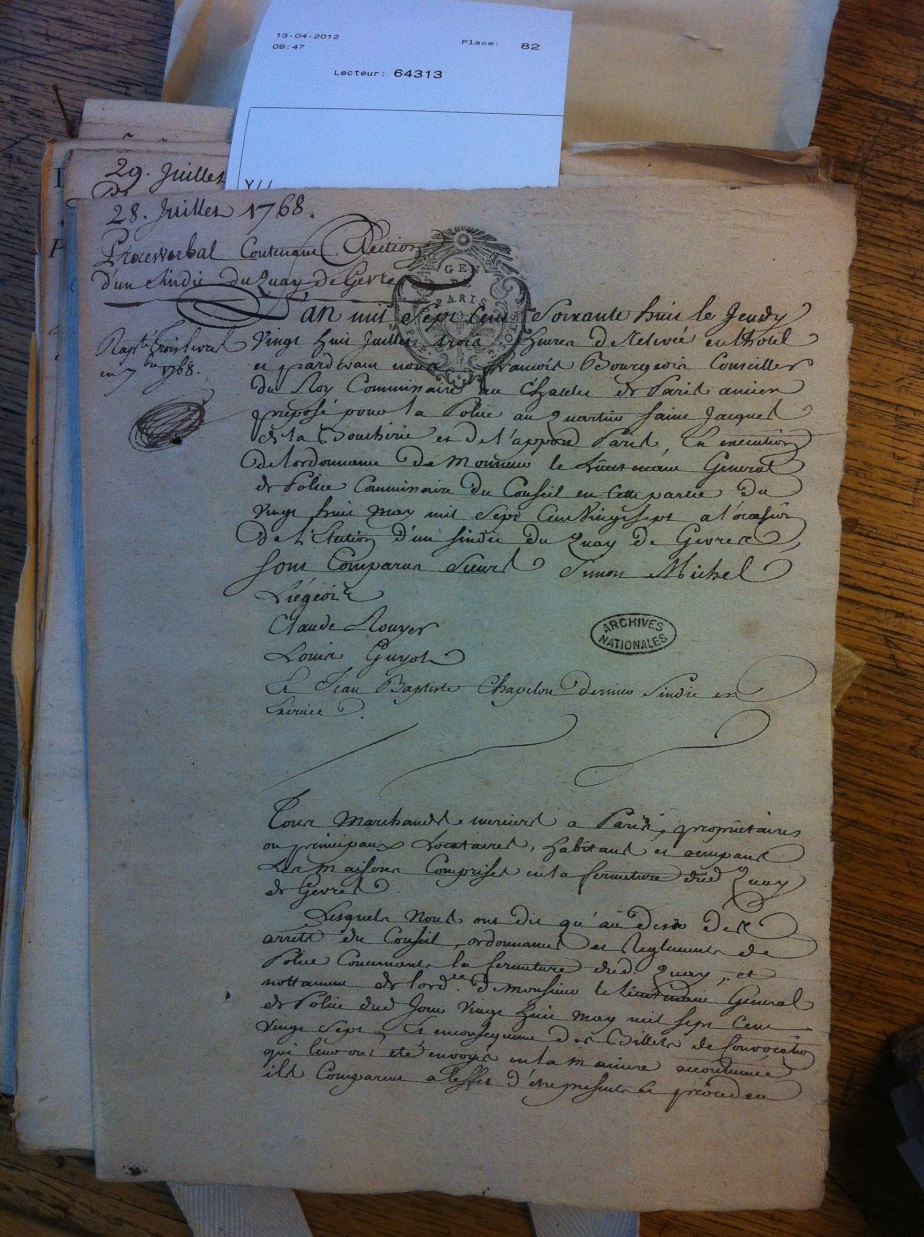 13-04-2012
09:47
Place: 82
Lecteur: 64313
29. Juillet
28. Juillet 1768.
Procesverbal Contenant Election
d'un Sindic du Quay de Gevre
GEN
DE
PARIS
L'an mil Sept Cent Soixante huit le Jeudy
Vingt huit Juillet trois heures de Relevée en l'hotel
et pardevant nous françois Bourgeois Conseiller
du Roy Commissaire au Chatelet de Paris ancien
préposé pour la Police au Quartier Saint Jacques
de la Boucherie et de l'apport Paris, En execution
de l'ordonnance de Monsieur le Lieutenant General
de Police Commissaire du Conseil en cette partie du
Vingt huit may mil Sept Cent Vingt Sept a l'ocasion
De l'Election d'un sindic du Quay de Gevres,
sont Comparus Sieurs Simon Michel
Liégeois
Claude Rouyer
Louis Guyot
Et Jean Baptiste Chapelou dernier Sindic en
Exercice.
ARCHIVES
NATIONALES
Tous Marchands merciers a Paris, propriétaires
ou principaux Locataires, habitans et occupans
Les maisons Comprises en la fermeture dud. Quay
de Gevres.
Lesquels Nous ont dit qu'au desir des
arrets du Conseil, ordonnances et Reglements de
Police Concernant la fermeture dud. Quay, et
nottamment de l'ord.ce de monsieur le Lieutenant General
de Police dud. Jour Vingt huit may mil sept Cent
Vingt Sept, Et en consequence des Billets de Convocation
qui leur ont été envoyés en la maniere accoutumée
ils Comparent a l'effet d'etre present et proceder